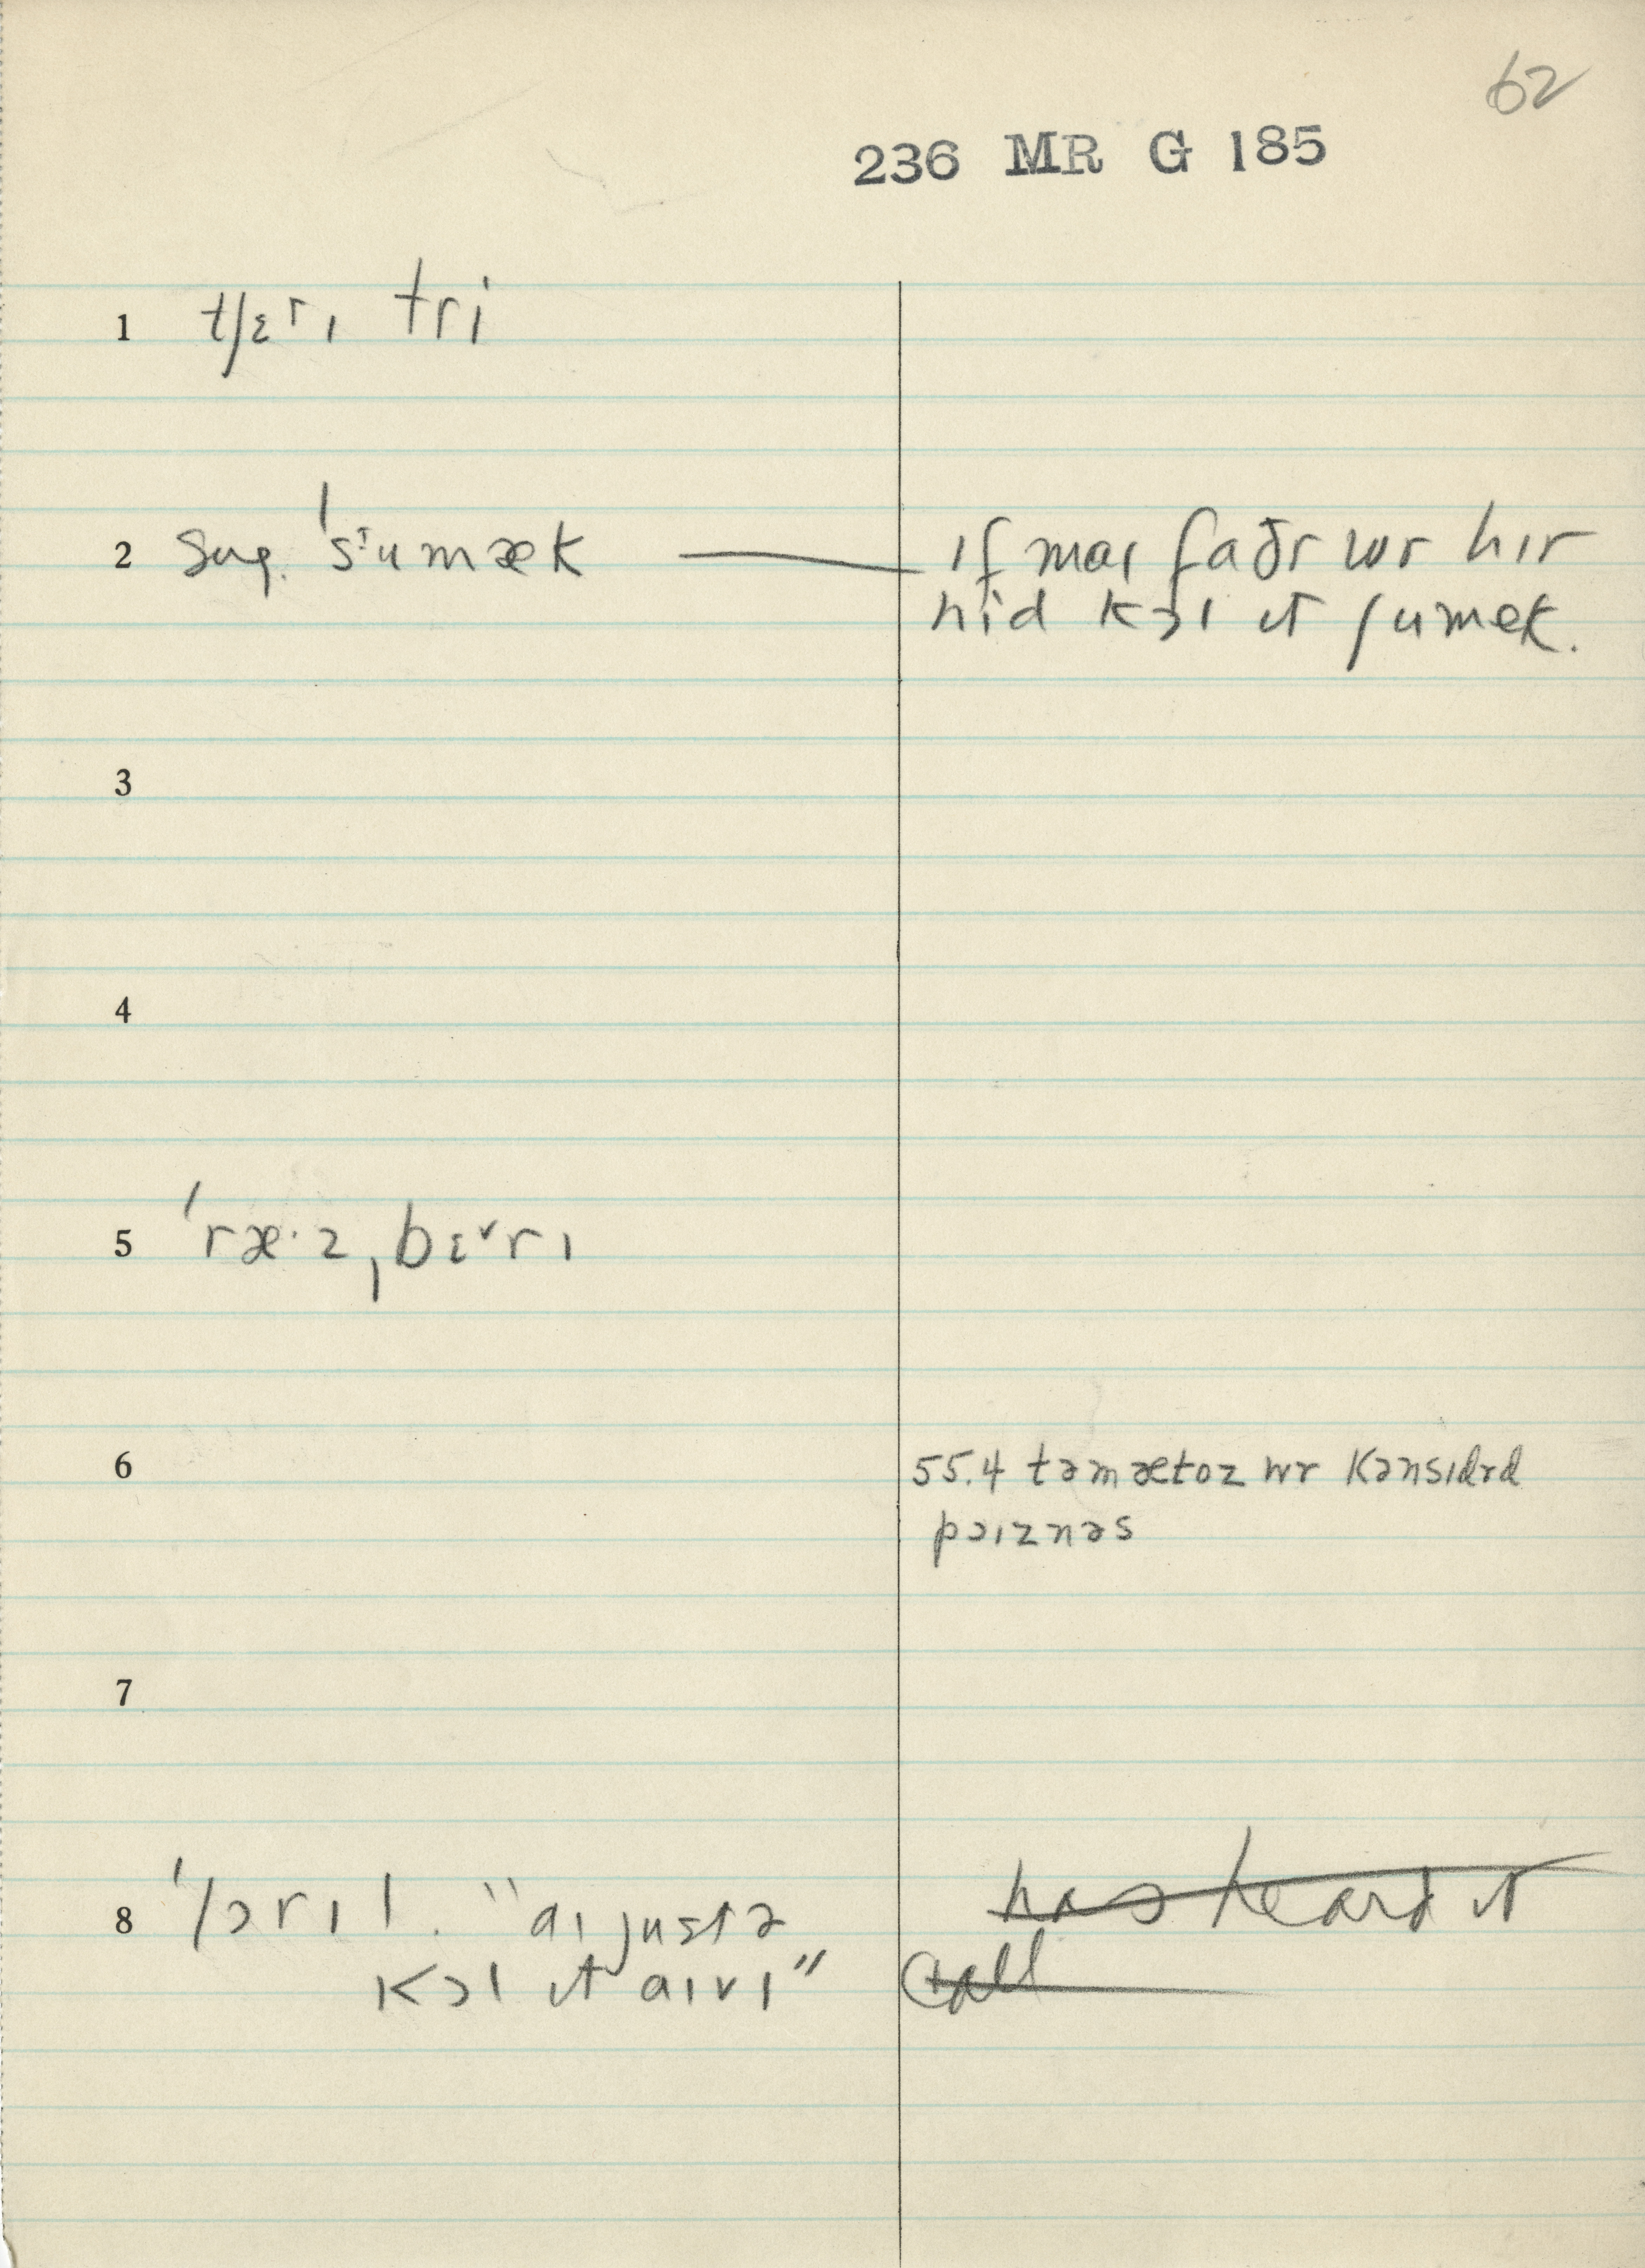 62
236 MR G 185
1 tʃɛrɪ tri
2 sug. ˈsumæk — ɪf maɪ faðr wr hɪr
hid kɔl ɪt ʃumek.
3
4
5 ˈræ·zˌbɛ˅rɪ
6 55.4 təmætoz wr kənsɪdrd
pɔɪznəs
7
8 ˈlɔrɪl. "aɪ justə has heard it
kɔl ɪt aɪvɪ" call